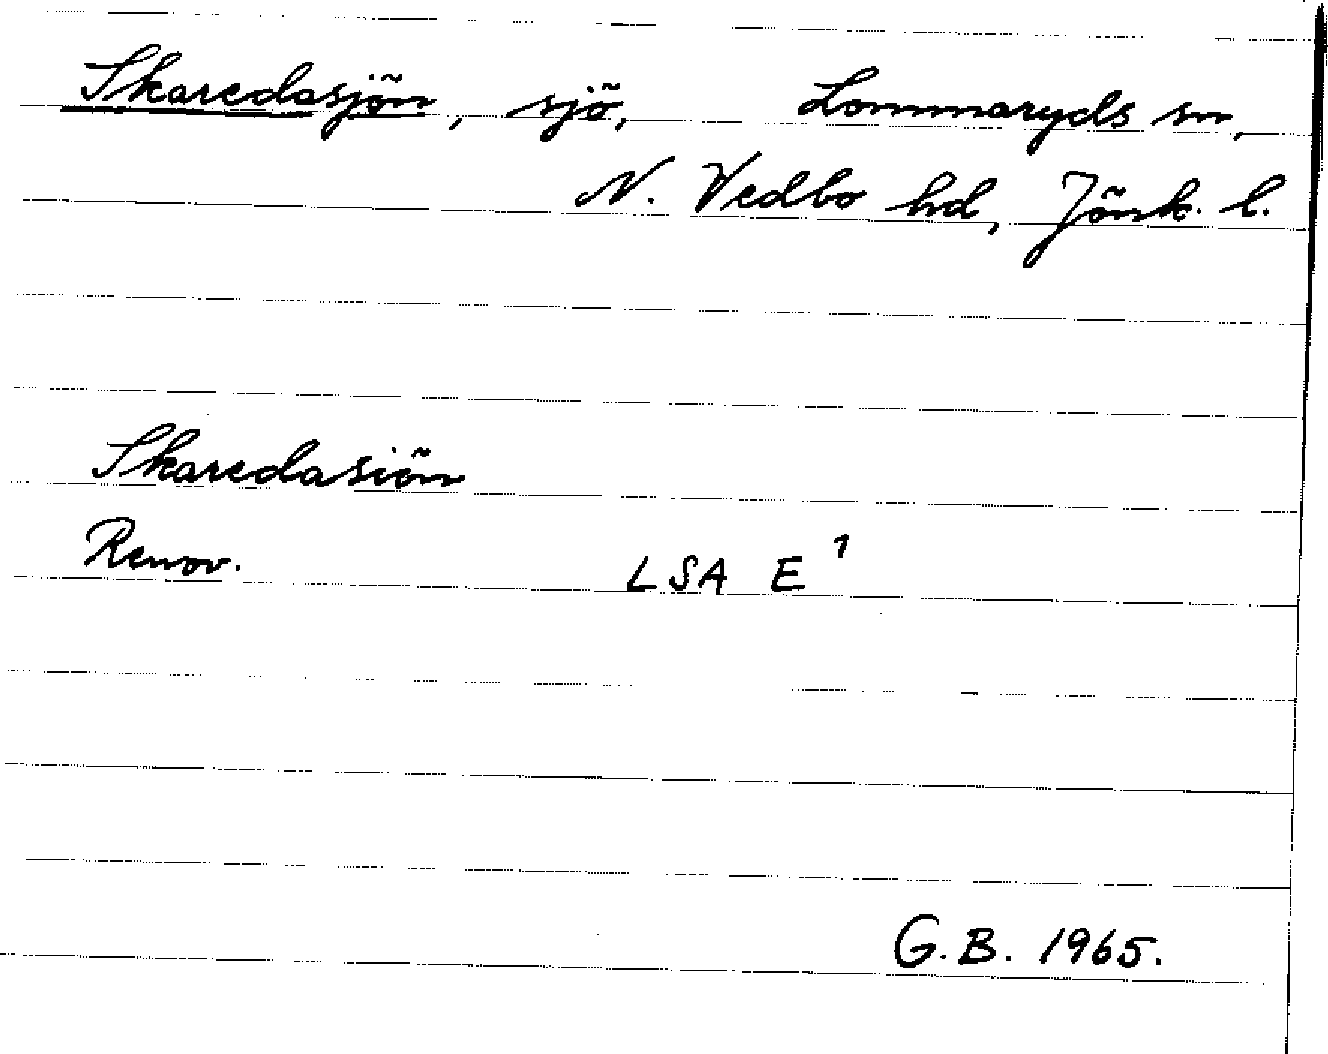 Skaredasjön, sjö, Lommaryds sn,
N. Vedbo hd, Jönk. l.
Skaredasiön
Renov. LSA E¹
G.B. 1965.